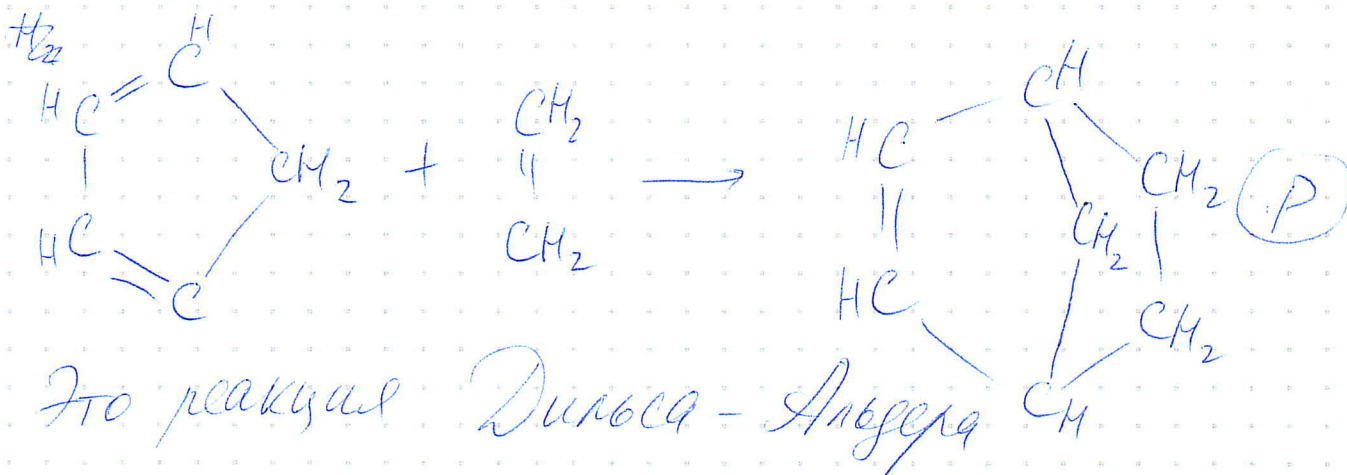 H
H C = C
CH2 + CH2 = CH2 →
HC
C
CH
HC
CH2
CH2
HC
CH2
CH
P
Это реакция Дильса - Альдера